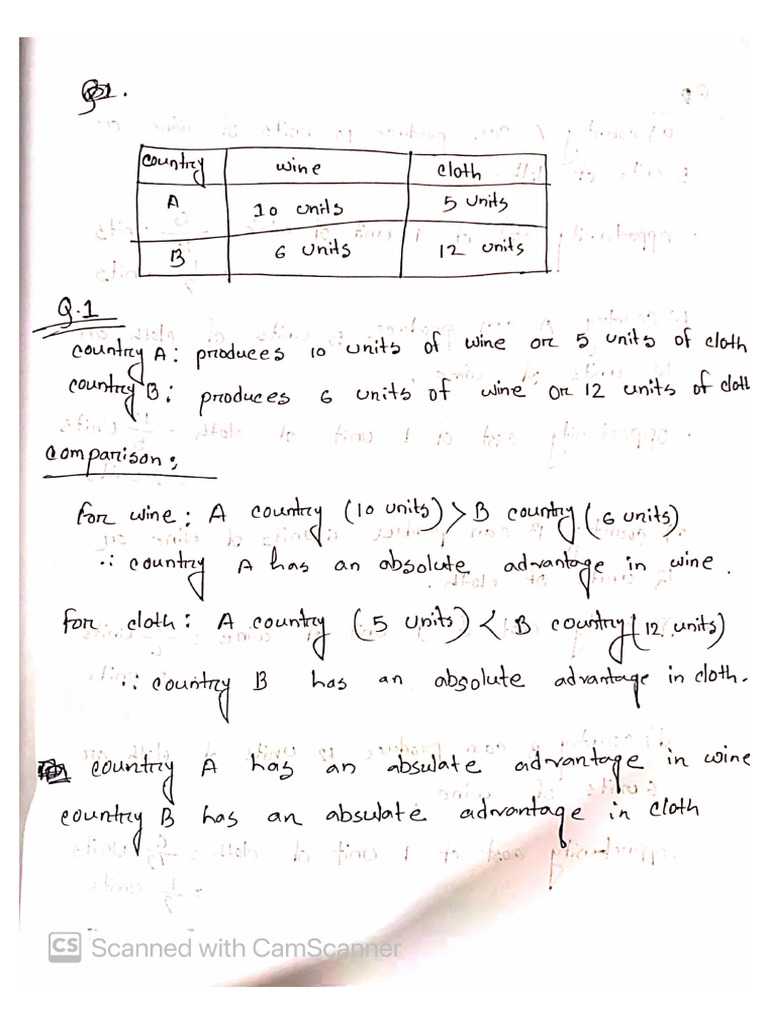 Q1.
country wine cloth
A 10 units 5 units
B 6 units 12 units
Q.1
country A: produces 10 units of wine or 5 units of cloth
country B: produces 6 units of wine or 12 units of cloth
comparison:
for wine: A country (10 units) > B country (6 units)
∴ country A has an absolute advantage in wine.
for cloth: A country (5 units) < B country (12 units)
∴ country B has an absolute advantage in cloth.
country A has an absulate advantage in wine
country B has an absulate advantage in cloth
CS Scanned with CamScanner